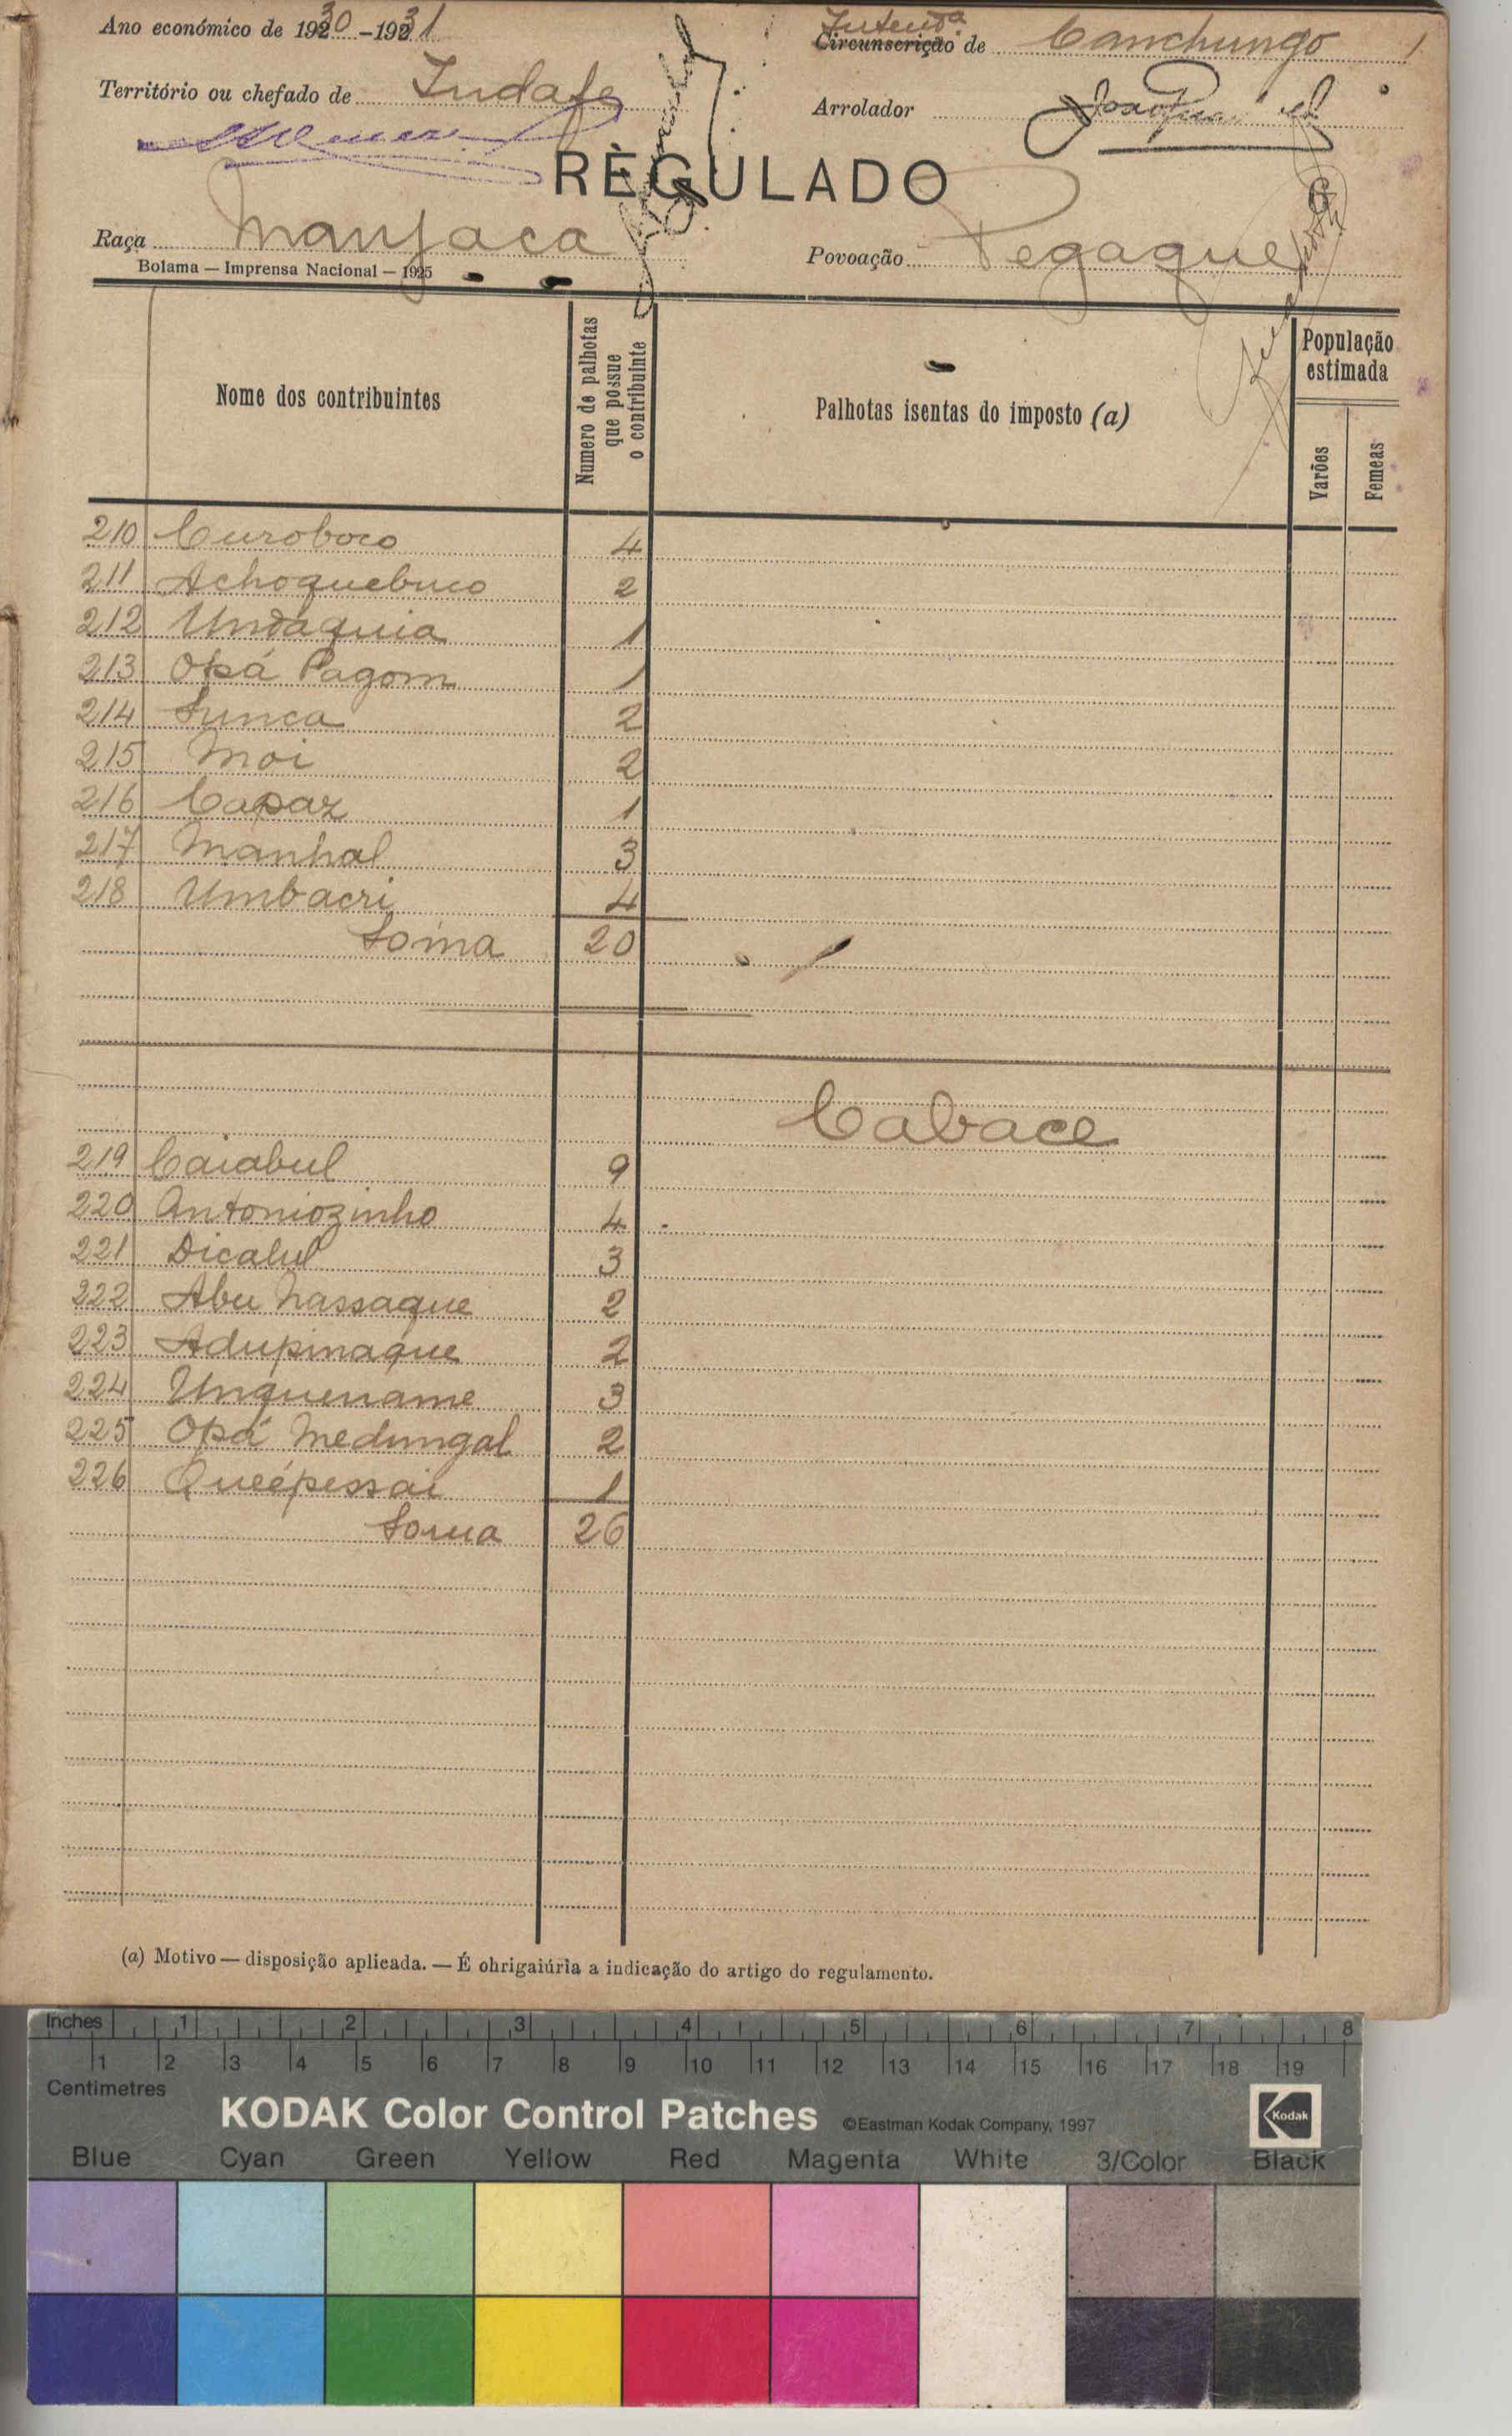 Ano económico de 1930-1931
Intendª
Circunscrição de Canchungo 1
Território ou chefado de Indafe
Arrolador
RÈGULADO
Raça Manjaca
Povoação Pegaque
Bolama — Imprensa Nacional — 1925
Nome dos contribuintes
Numero de palhotas
que possue
o contribuinte
Palhotas isentas do imposto (a)
População
estimada
Varões
Femeas
210 Curoboco 4
211 Achoquebuco 2
212 Undaquia 1
213 Opá Pagom 1
214 Sunca 2
215 Moi 2
216 Capaz 1
217 Manhal 3
218 Umbacri 4
Soma 20
Cabace
219 Caiabul 9
220 Antoniozinho 4
221 Dicalul 3
222 Abu Nassaque 2
223 Adupinaque 2
224 Unquename 3
225 Opá Medungal 2
226 Queépessai 1
Soma 26
(a) Motivo — disposição aplicada. — É ohrigaiúria a indicação do artigo do regulamento.
Inches 1 2 3 4 5 6 7 8
1 2 3 4 5 6 7 8 9 10 11 12 13 14 15 16 17 18 19
Centimetres
KODAK Color Control Patches ©Eastman Kodak Company, 1997 Kodak
Blue Cyan Green Yellow Red Magenta White 3/Color Black